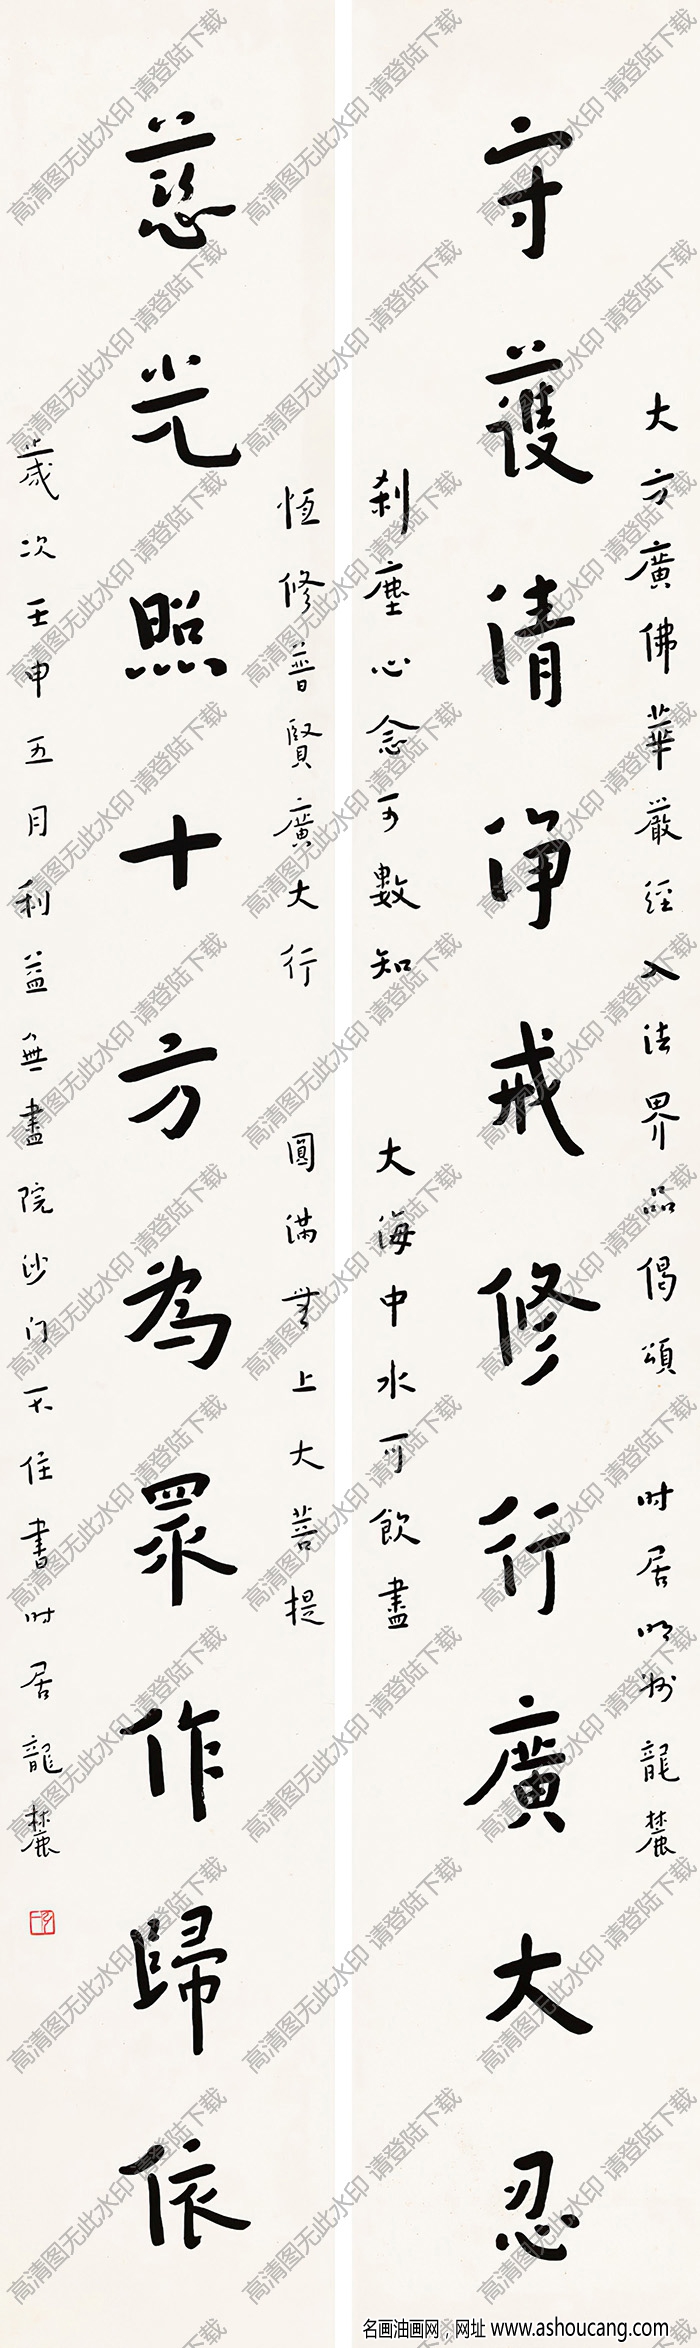 大方廣佛華嚴經入法界品偈頌 时居明州龍麓
守護清净戒修行廣大忍
刹塵心念可數知 大海中水可飲盡
恆修普賢廣大行 圓滿無上大菩提
慈光照十方為眾作歸依
歲次壬申五月利益無盡院沙门不住書时居龍麓
高清图无此水印 请登陆下载
名画油画网，网址 www.ashoucang.com